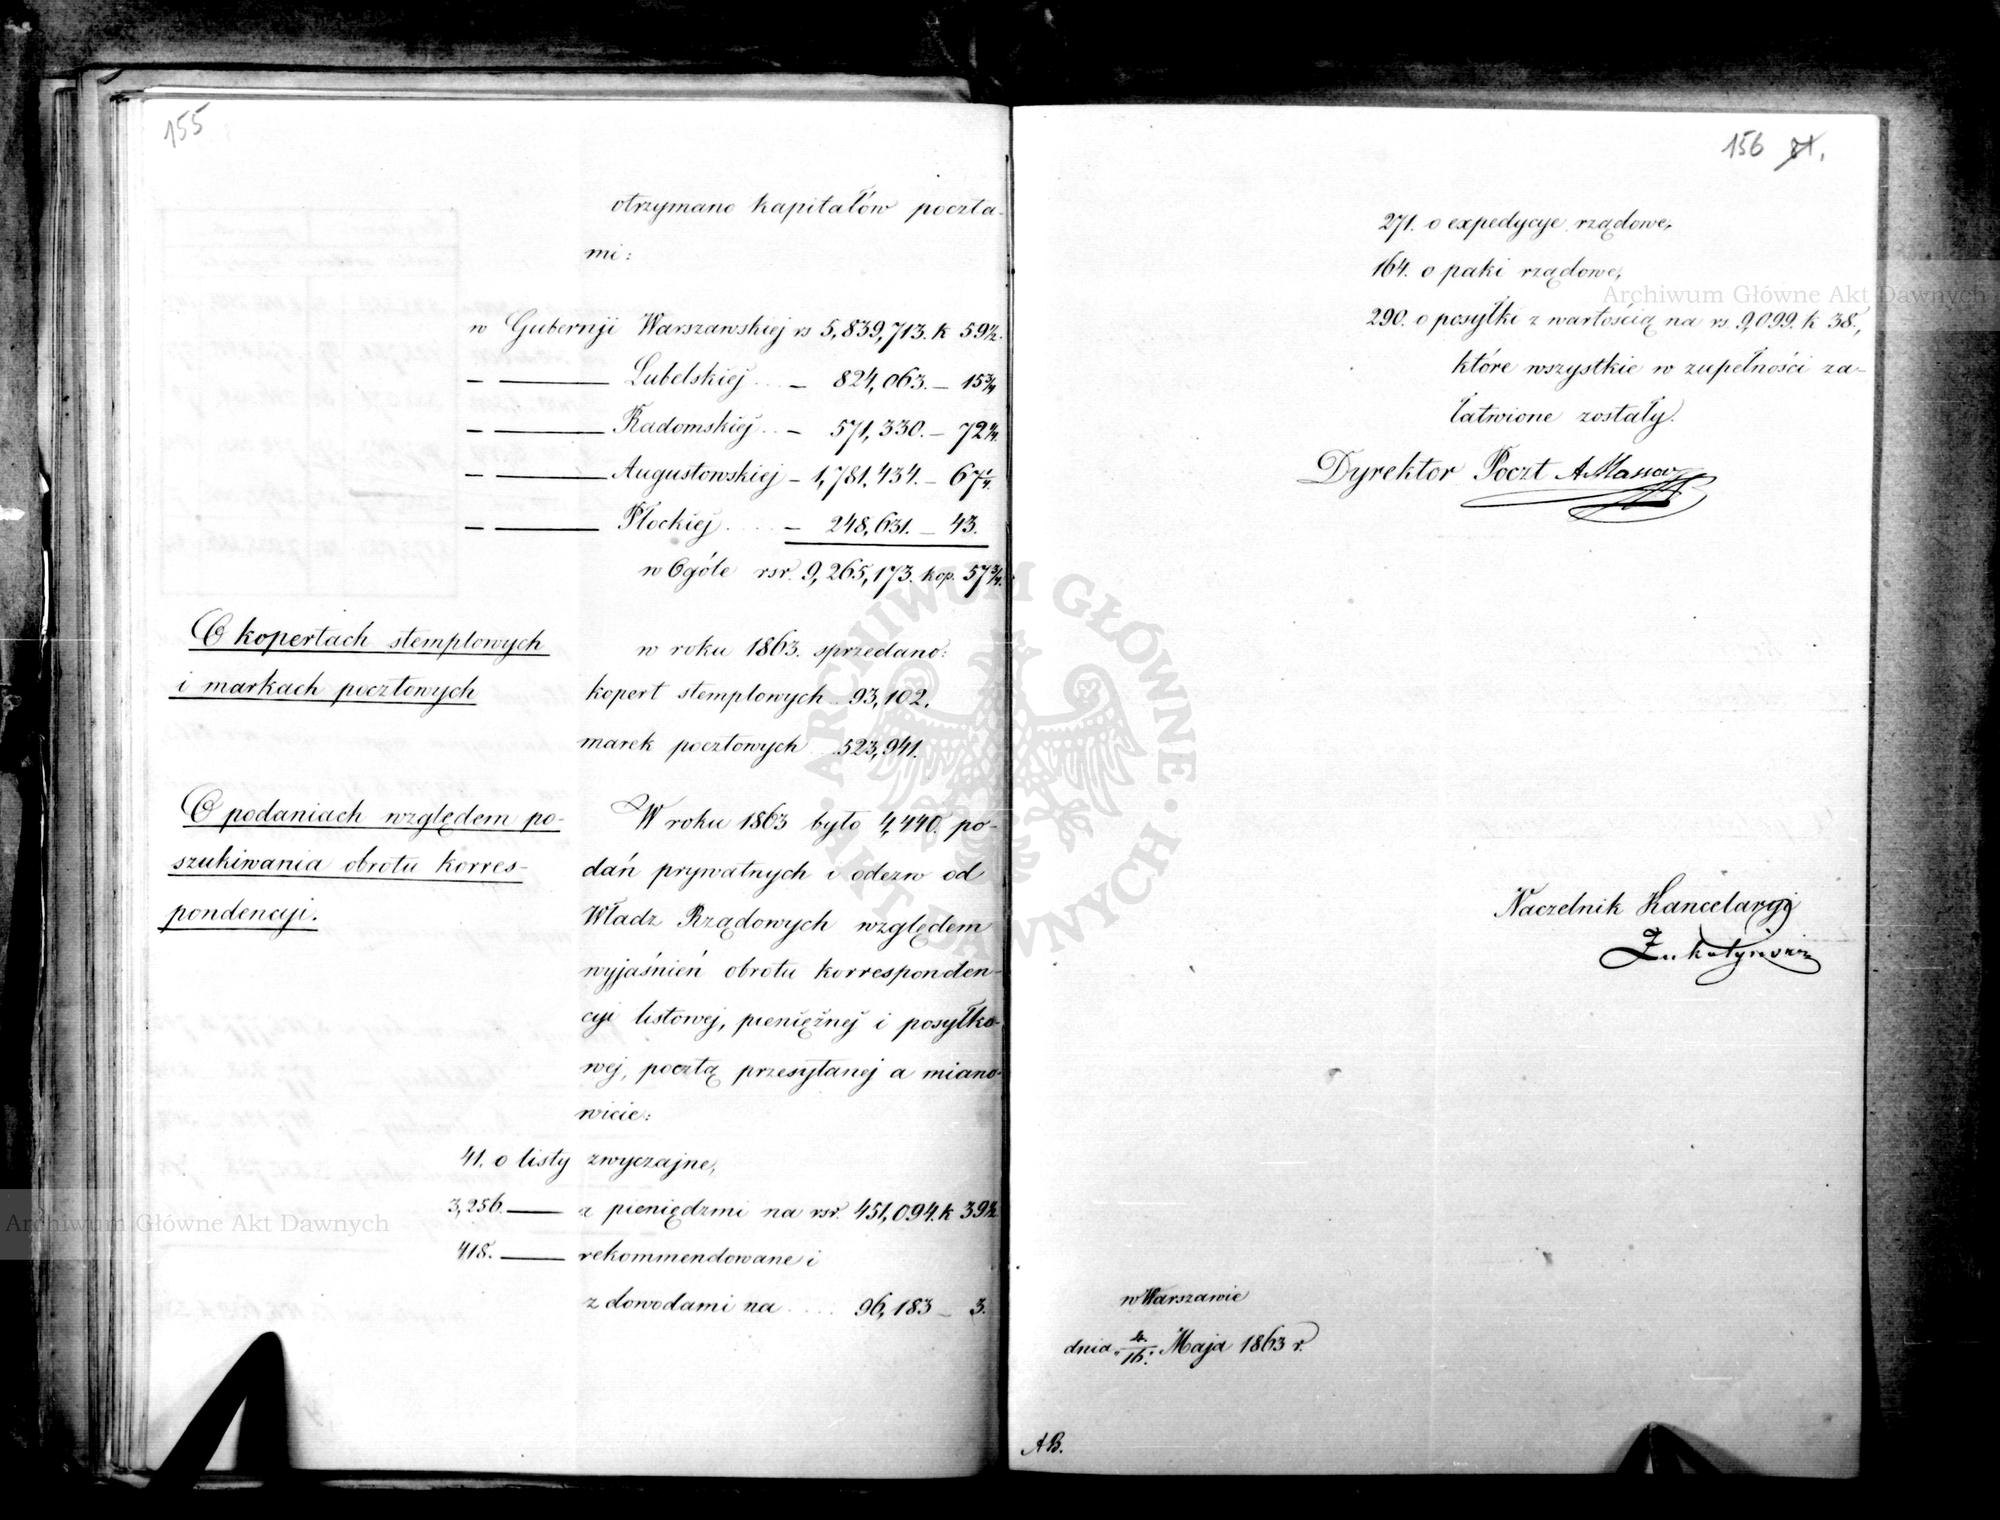 155
otrzymano kapitałów poczta-
mi:
w Gubernji Warszawskiej rs 5,839,713. k 59½.
— —— Lubelskiej .... — 824,063. — 15¾
— —— Radomskiej .. — 571,330. — 72¼.
— —— Augustowskiej — 1,781,434. — 67¼.
— —— Płockiej ..... — 248,631. — 43.
w Ogóle rsr. 9,265,173. kop. 57¾.
O kopertach stemplowych
i markach pocztowych
w roku 1863. sprzedano:
kopert stemplowych .. 93,102.
marek pocztowych ... 523,941.
O podaniach względem po-
szukiwania obrotu korres-
pondencyi.
W roku 1863 było 4,440. po-
dań prywatnych i odezw od
Władz Rządowych względem
wyjaśnień obrotu korresponden-
cyi listowej, pieniężnej i posyłko-
wej, pocztą przesyłanej a miano-
wicie:
41. o listy zwyczajne,
3,256. —— z pieniędzmi na rsr. 451,094. k 39½
418. —— rekommendowane i
z dowodami na ..... 96,183 — 3.
156 81.
271. o expedycje rządowe,
164. o paki rządowe,
290. o posyłki z wartością na rs. 9,099. k 38.,
które wszystkie w zupełności za-
łatwione zostały.
Dyrektor Poczt A
Naczelnik Kancelaryi
w Warszawie
dnia 4/16. Maja 1863 r.
AB.
ARCHIWUM GŁÓWNE AKT DAWNYCH
Archiwum Główne Akt Dawnych
Archiwum Główne Akt Dawnych